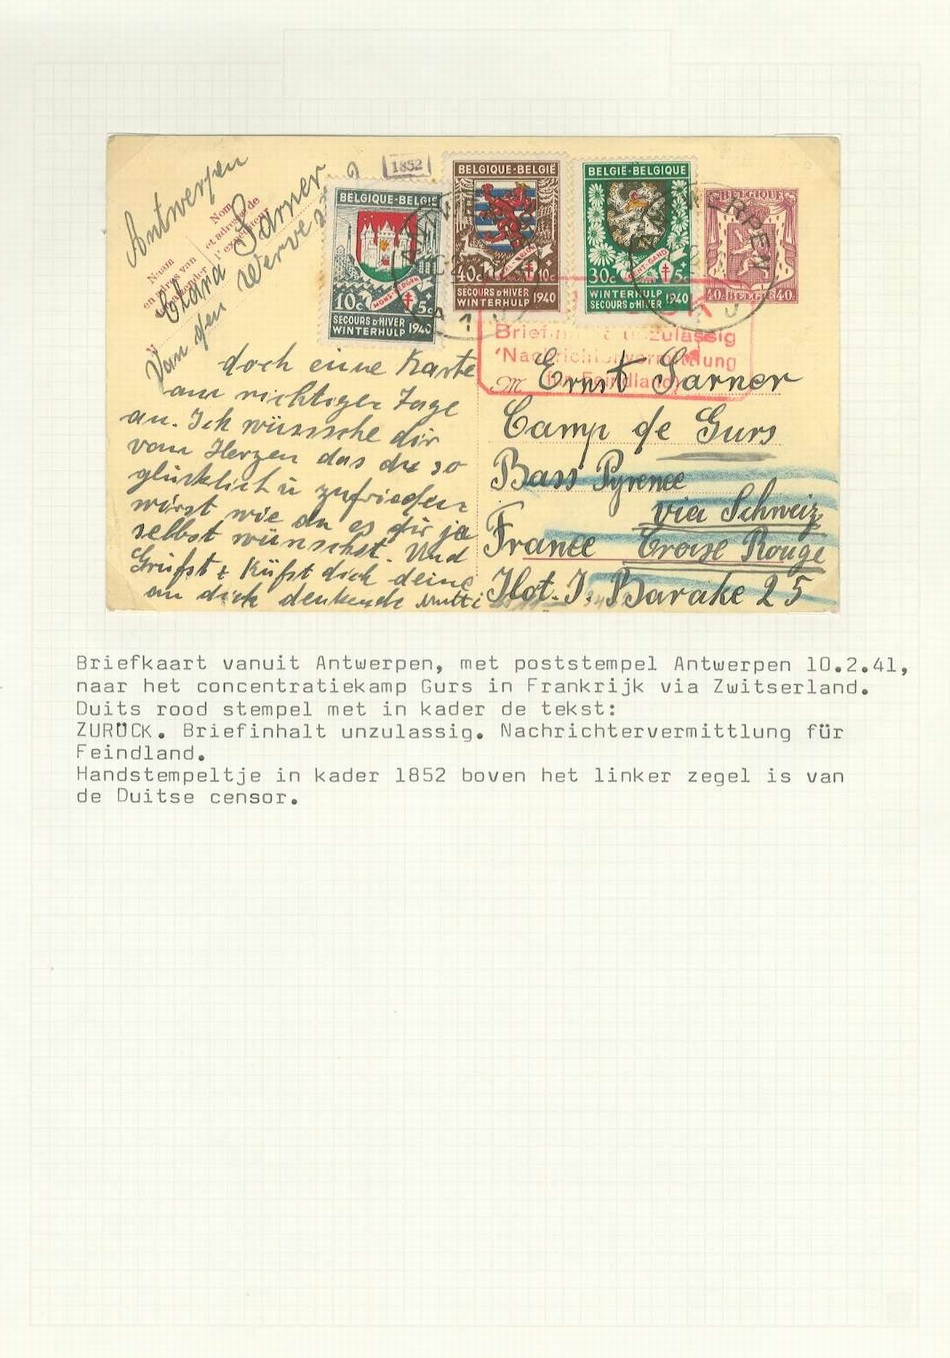 Antwerpen
Clara Sarner
Van den Werve
Naam
en adres van
Nom
et adresse
1852
BELGIQUE-BELGIE
10c 5c
SECOURS D'HIVER
WINTERHULP 1940
BELGIQUE-BELGIE
40c 10c
SECOURS D'HIVER
WINTERHULP 1940
BELGIË-BELGIQUE
30c 5c
WINTERHULP 1940
SECOURS D'HIVER
BELGIQUE
40. BELGIË 40.
Nachrichtenvermittlung
für Feindland
doch eine Karte
am richtiger Tage
an. Ich wünsche dir
vom Herzen das du so
glücklich u zufrieden
wirst wie du es dir ja
selbst wünschst. Und
Grüßt & Küßt dich deine
an dich denkende Mutti
M Ernst Sarner
Camp de Gurs
Bass Pyrenee
via Schweiz
France Croise Rouge
Ilot. I. Barake 25
Briefkaart vanuit Antwerpen, met poststempel Antwerpen 10.2.41,
naar het concentratiekamp Gurs in Frankrijk via Zwitserland.
Duits rood stempel met in kader de tekst:
ZURÜCK. Briefinhalt unzulassig. Nachrichtervermittlung für
Feindland.
Handstempeltje in kader 1852 boven het linker zegel is van
de Duitse censor.